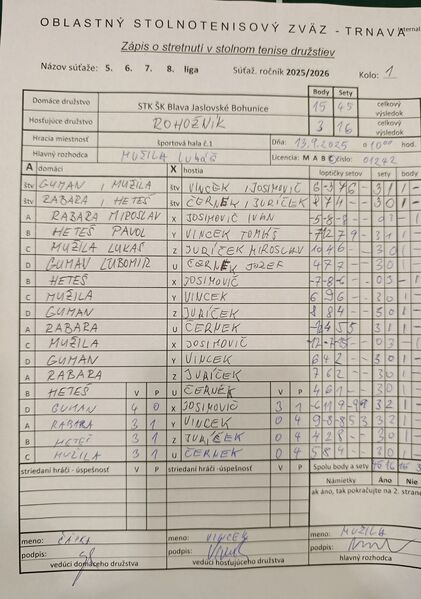 OBLASTNÝ STOLNOTENISOVÝ ZVÄZ - TRNAVA
Zápis o stretnutí v stolnom tenise družstiev
Názov súťaže: 5. 6. 7. 8. liga Súťaž. ročník 2025/2026 Kolo: 1
Body Sety
Domáce družstvo STK ŠK Blava Jaslovské Bohunice 15 45 celkový výsledok
Hosťujúce družstvo ROHOŽNÍK 3 16 celkový výsledok
Hracia miestnosť športová hala č.1 Dňa: 13.9.2025 o 10:00 hod.
Hlavný rozhodca MUŽILA Lukáš Licencia: M A B C číslo: 01242
A domáci X hostia loptičky setov sety body
štv GUMAN, MUŽILA štv VINCEK, JOSIMOVIČ
štv RABARA, HETEŠ štv ČERNEK, JURÍČEK 3 0 1 -
A RABARA MIROSLAV X JOSIMOVIČ IVAN
B HETEŠ PAVOL Y VINCEK TOMÁŠ 3 1 1 -
C MUŽILA LUKÁŠ Z JURÍČEK MIROSLAV 10 4 6 - - 3 0 1
D GUMAN ĽUBOMÍR U ČERNEK JOZEF 4 7 7 - - 3 0 1 -
B HETEŠ X JOSIMOVIČ -7 -8 -6 - - 0 3 - 1
C MUŽILA Y VINCEK 6 9 6 - - 3 0 1 -
D GUMAN Z JURÍČEK 8 8 4 - - 3 0 1 -
A RABARA U ČERNEK 3 1 1 -
C MUŽILA X JOSIMOVIČ 0 3 - 1
D GUMAN Y VINCEK 6 4 2 - - 3 0 1 -
A RABARA Z JURÍČEK 7 6 2 - - 3 0 1 -
B HETEŠ V P U ČERNEK V P 4 6 1 - - 3 0 1 -
D GUMAN 4 0 X JOSIMOVIČ 3 1 3 2 1 -
A RABARA 3 1 Y VINCEK 0 4 9 -8 5 3 3 1 -
B HETEŠ 3 1 Z JURÍČEK 0 4 4 2 8 - - 3 0 1
C MUŽILA 3 1 U ČERNEK 0 4 5 8 4 - - 3 0 1 -
striedaní hráči - úspešnosť V P striedaní hráči - úspešnosť V P Spolu body a sety 45 16 15 3
Námietky Áno Nie
ak áno, tak pokračujte na 2. strane
meno: meno: VINCEK meno: MUŽILA
podpis: podpis: podpis:
vedúci domáceho družstva vedúci hosťujúceho družstva hlavný rozhodca